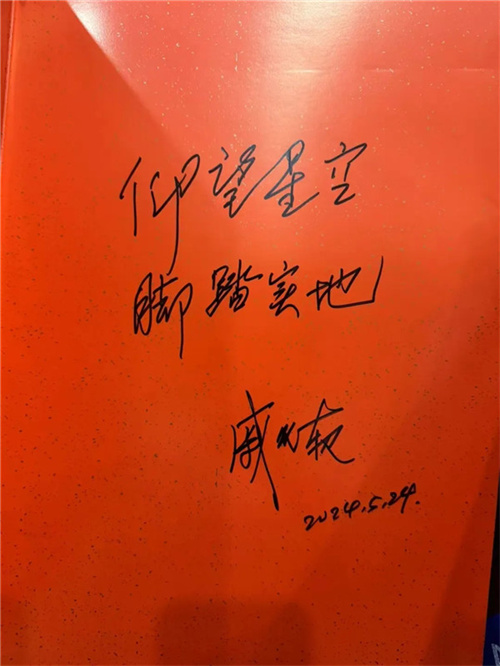 仰望星空
脚踏实地
戚发轫
2024.5.24.